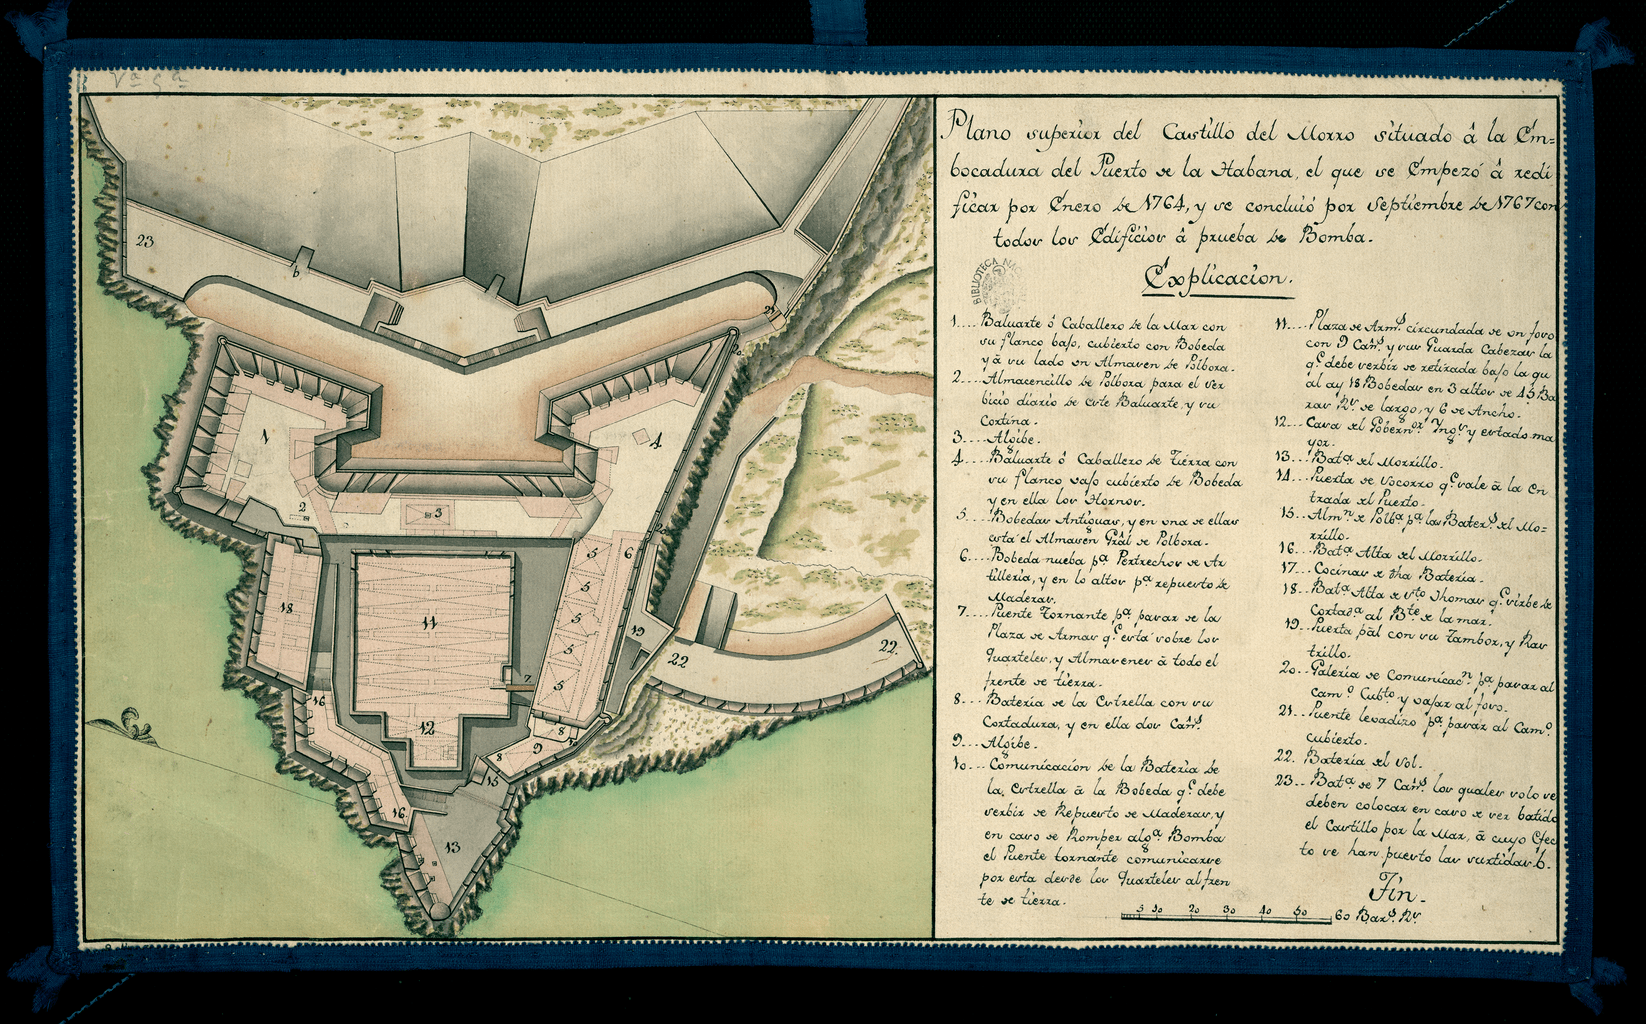 Plano superior del Castillo del Morro situado â la Em=
bocadura del Puerto de la Habana, el que se Empezó â redi
ficar por Enero de 1764, y se concluió por Septiembre de 1767 con
todos los Edificios â prueba de Bomba.
Explicacion.
1.... Baluarte ô Caballero de la Mar con
su flanco bajo, cubierto con Bobeda
y â su lado un Almasen de Polbora.
2.... Almacencillo de Polbora para el ser
bicio diario de este Baluarte, y su
Cortina.
3.... Algibe.
4.... Baluarte ô Caballero de Tierra con
su flanco vajo cubierto de Bobeda
y en ella los Hornos.
5.... Bobedas Antiguas, y en una de ellas
está el Almasen Grâl de Polbora.
6.... Bobeda nueba pª Pertrechos de Ar
tilleria, y en lo altos pª repuesto de
Maderas.
7.... Puente Tornante pª pasar de la
Plaza de Armas qᵉ está sobre los
Quarteles, y Almasenes â todo el
frente de tierra.
8.... Bateria de la Estrella con su
Cortadura, y en ella dos Cañˢ.
9.... Algibe.
10... Comunicacion de la Bateria de
la Estrella â la Bobeda qᵉ debe
serbir de Repuesto de Maderas, y
en caso de Romper algª Bomba
el Puente tornante comunicarse
por esta desde los Quarteles al fren
te de tierra.
11.... Plaza de Armˢ circundada de un foso
con 9 Cañˢ y sus Guarda Cabezas la
qᵉ debe serbir de retirada bajo la qu
al ay 18 Bobedas en 3 altos de 15 Ba
ras Rˢ de largo, y 6 de Ancho.
12... Casa del Goberⁿᵒʳ Yngˢ y estado ma
yor.
13... Batª del Morrillo.
14... Puerta de socorro qᵉ sale â la En
trada del Puerto.
15... Almⁿ de Polbª pª las Baterˢ del Mo=
rrillo.
16... Batª Alta del Morrillo.
17... Cocinas de dha Bateria.
18... Batª Alta de Sto Thomas qᵉ sirbe de
Cortadª al Bᵗᵉ de la mar.
19... Puerta pâl con su Tambor, y Ras
trillo.
20.. Galeria de Comunicacⁿ pª pasar al
camᵒ Cubᵗᵒ y vajar al foso.
21... Puente levadizo pª pasar al Camᵒ
cubierto.
22. Bateria del Sol.
23... Batª de 7 Cañˢ los quales solo se
deben colocar en caso de ser batido
el Castillo por la Mar, â cuyo Efec
to se han puesto las surtidas b.
Fin.
5 10 20 30 40 50 60 Barˢ Rˢ
23
b
21
20
1
4
2
3
20
5
6
5
18
11
5
19
5
22
22.
7
5
16
12
8
9
8
15
16
13
BIBLIOTECA NAC